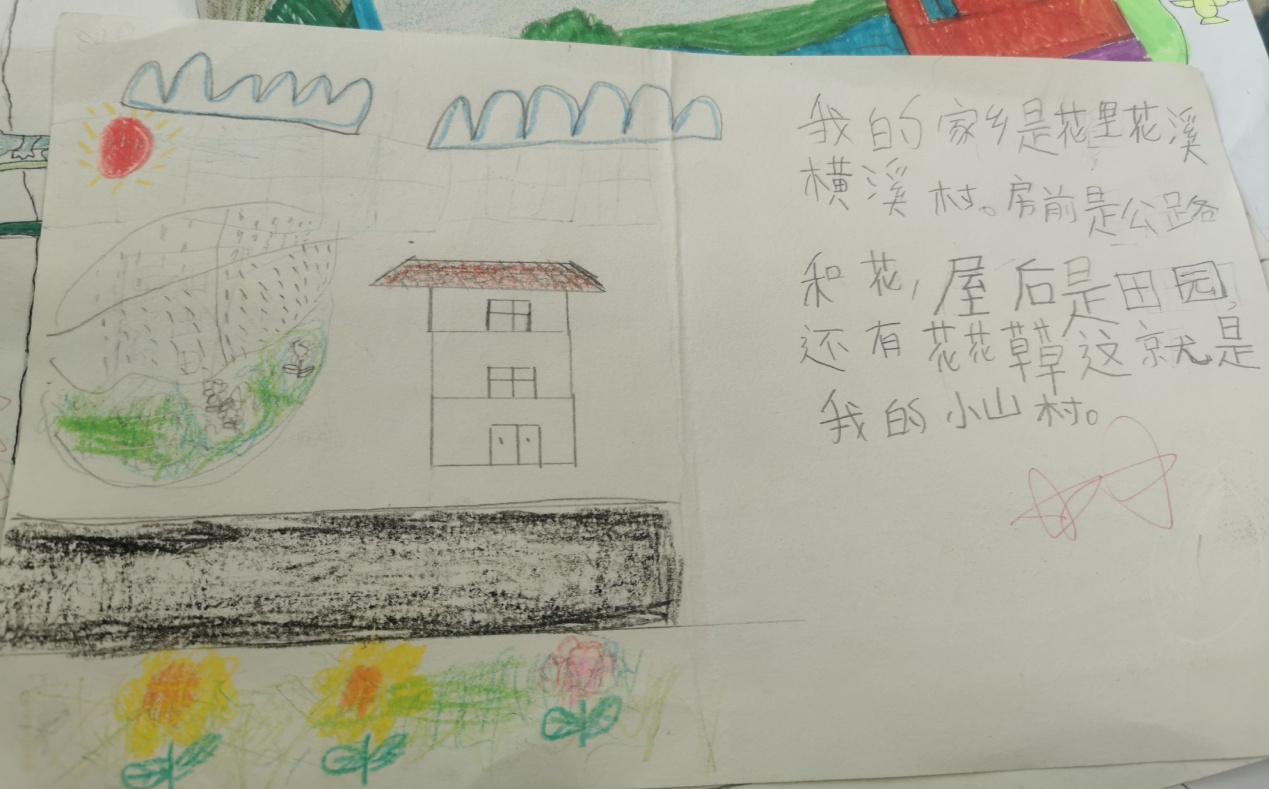 我的家乡是花里花溪
横溪村。房前是公路
和花,屋后是田园,
还有花花草草这就是
我的小山村。